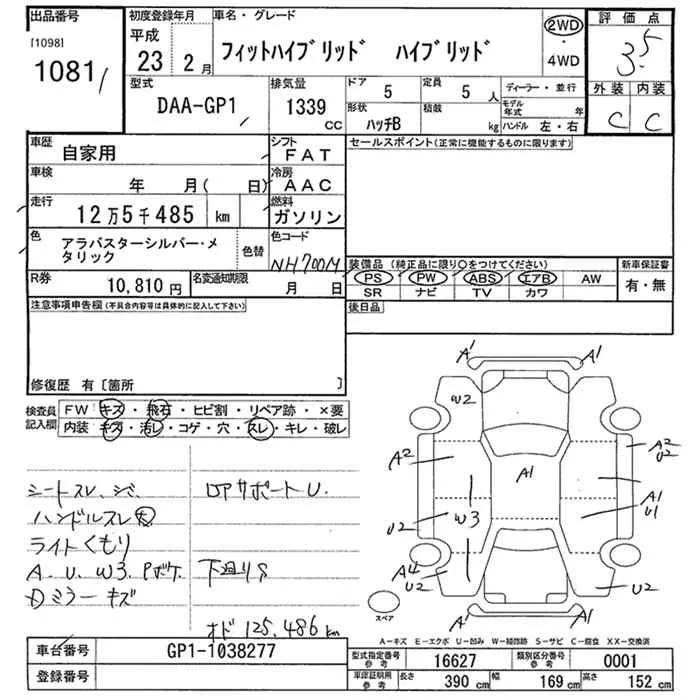 出品番号
[1098]
1081
初度登録年月
平成
23 2月
車名・グレード
フィットハイブリッド ハイブリッド
2WD
・
4WD
評価点
3.5
外装 内装
C C
型式
DAA-GP1
排気量
1339
CC
ドア
5
定員
5 人
ディーラー・並行
形状
ハッチB
積載
kg
モデル年式 年
ハンドル 左・右
車歴
自家用
シフト
FAT
車検
年 月( 日)
冷房
AAC
走行
12万5千485 km
燃料
ガソリン
色
アラバスターシルバー・メ
タリック
色替
色コード
NH700M
R券
10,810 円
名変通知期限
月 日
セールスポイント(正常に機能するものに限ります)
装備品 (純正品に限り○をつけてください)
PS PW ABS エアB AW
SR ナビ TV カワ
新車保証書
有・無
後日品
注意事項申告欄(不具合内容等は具体的に記入して下さい)
修復歴 有〔箇所 〕
検査員
記入欄
FW キズ・飛石・ヒビ割・リペア跡・×要
内装 キズ・汚レ・コゲ・穴・スレ・キレ・破レ
シートスレ、シミ、
ハンドルスレ大
ライトくもり
A. U. W3. Pポケ.
Dミラー キズ
下廻りS
オド 125,486 km
A1
A1
W2
A2
A2
U2
A1
A1
U1
U2
W3
A4
U2
U2
A1
A1
スペア
A-キズ E-エクボ U-凹み W-補修跡 S-サビ C-腐食 XX-交換済
車台番号
GP1-1038277
登録番号
型式指定番号
参考
16627
類別区分番号
参考
0001
車庫証明用
参考
長さ
390 cm
幅
169 cm
高さ
152 cm